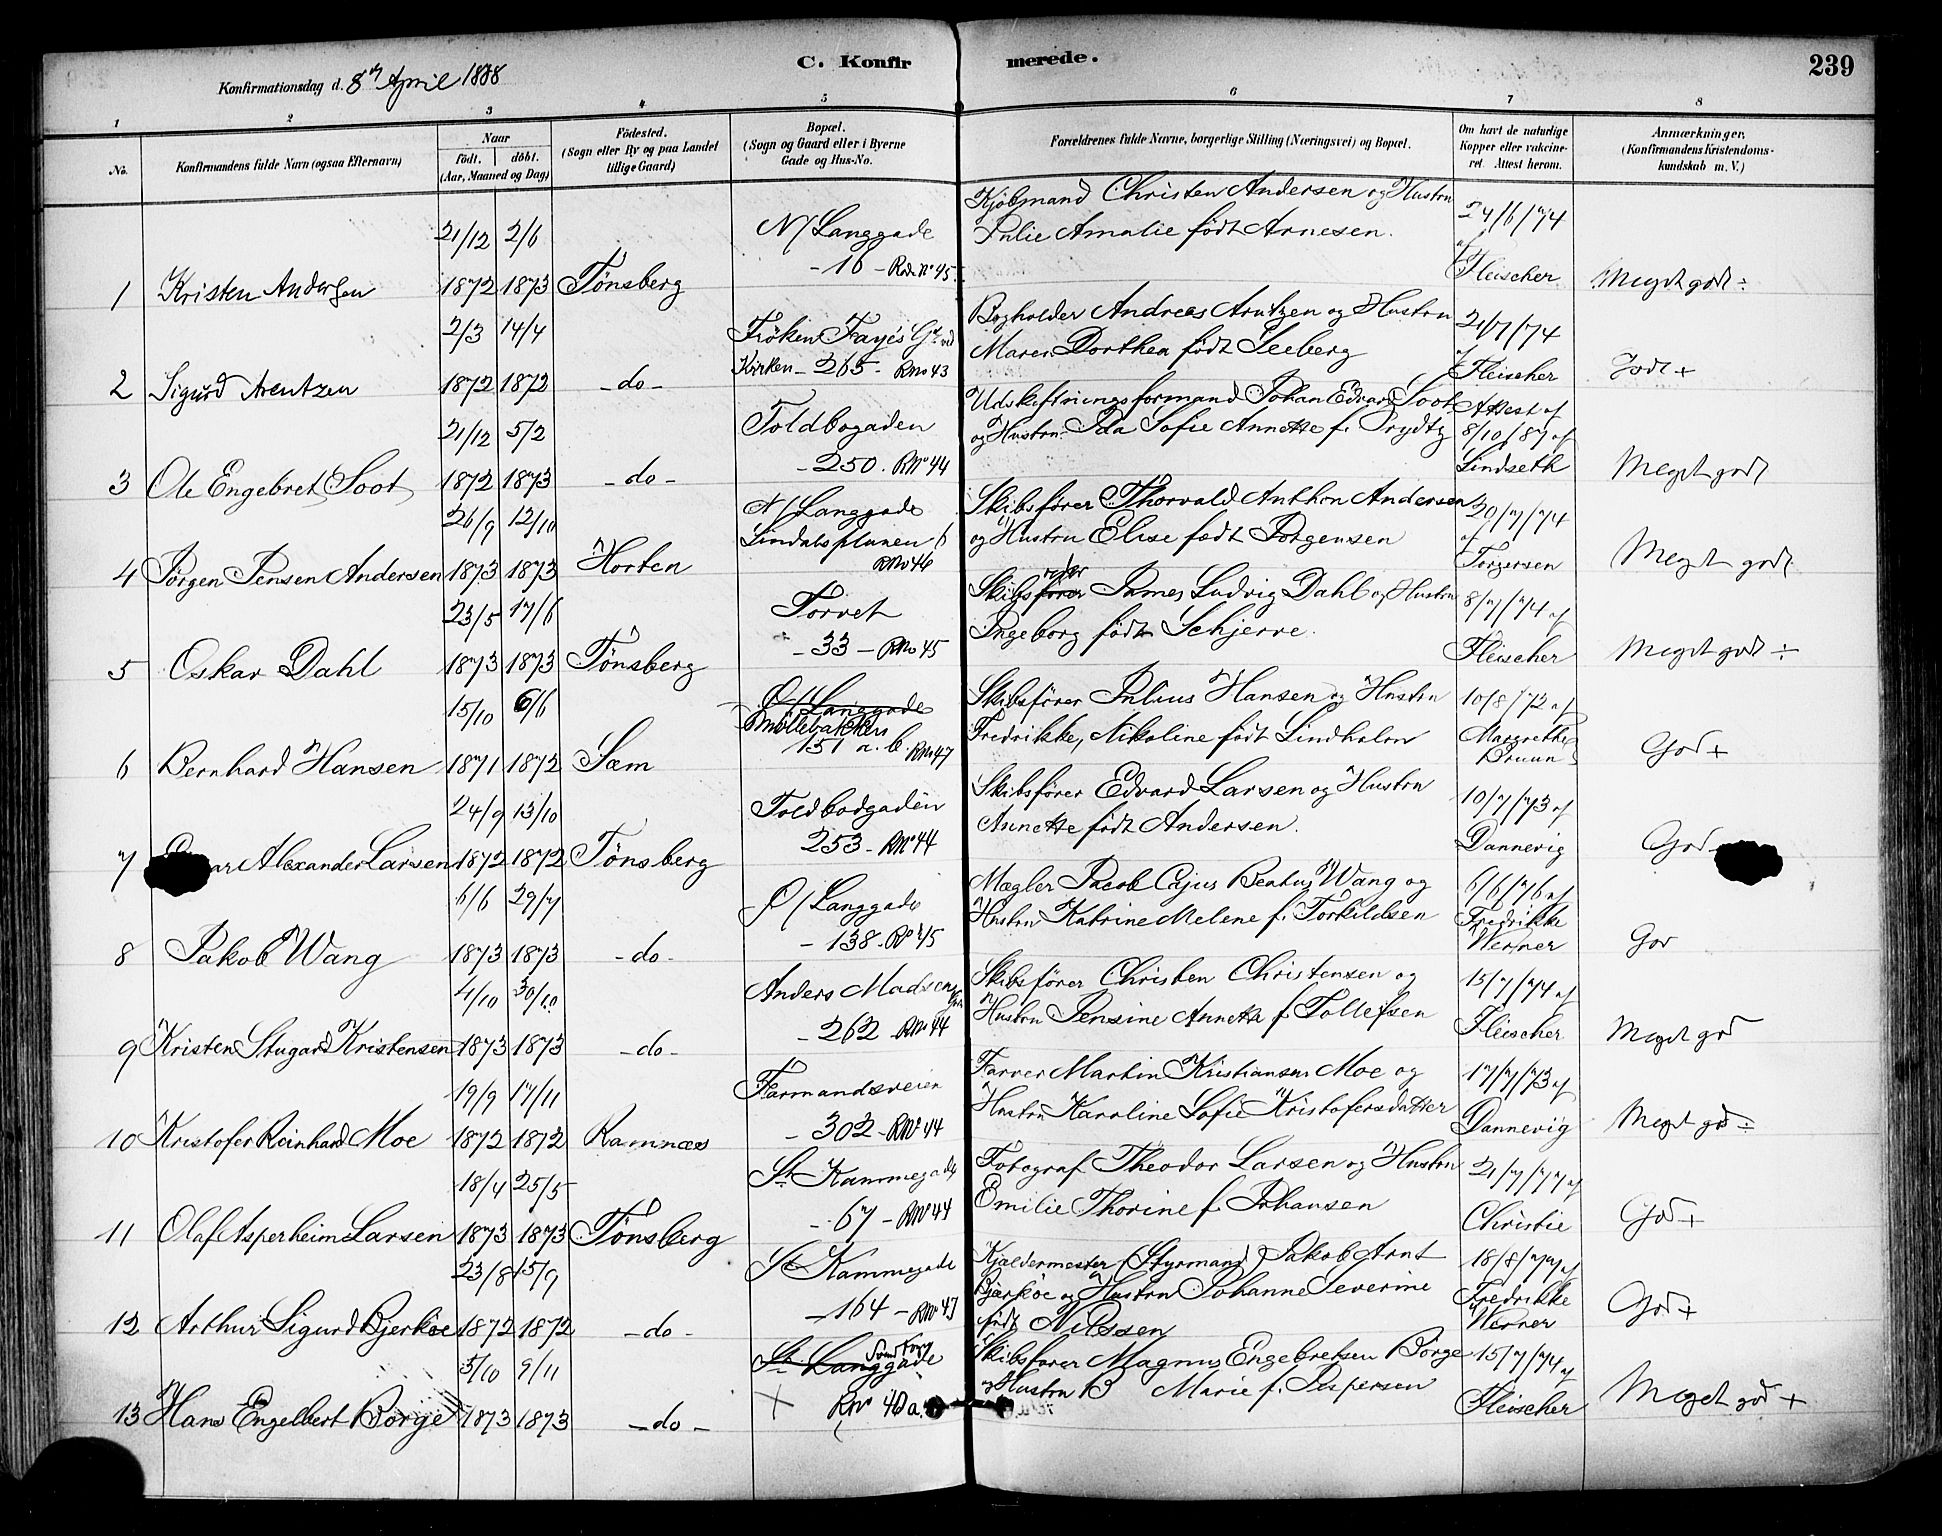 C. Konfirmerede.
239
Konfirmationsdag d. 8de April 1888
1 2 3 4 5 6 7 8
No. Konfirmandens fulde Navn (ogsaa Efternavn) Naar født. døbt. (Aar, Maaned og Dag) Fødested. (Sogn eller By og paa Landet tillige Gaard) Bopæl. (Sogn og Gaard eller i Byerne Gade og Hus-No. Forældrenes fulde Navne, borgerlige Stilling (Næringsvei) og Bopæl. Om havt de naturlige Kopper eller vakcineret. Attest herom. Anmærkninger, (Konfirmandens Kristendomskundskab m. V.)
21/12 2/6 N/ Langgade Kjøbmand Christen Andersen og Hustru 24/6/74
- 16 - Rode No 45. Julie Amalie født Arnesen. af
1 Kristen Andersen 1872 1873 Tønsberg Fleischer Meget godt ÷
2/3 14/4 Frøken Fayes Gd ved Bogholder Andreas Arntzen og Hustru 21/7/74
Kirken - 265 - RNo 43 Maren Dorthea født Seeberg af
2 Sigurd Arentzen 1872 1872 - do - Fleischer Godt +
21/12 5/2 Toldbogaden Udskiftningsformand Johan Edvard Soot Attest af
- 250. RNo 44 og Hustru Ida Sofie Annette f. Prydtz 8/10/87 af
3 Ole Engebret Soot 1872 1873 - do - Lindseth Meget godt
26/9 12/10 N/ Langgade Skibsfører Thorvald Anthon Andersen 20/7/74
Lindalsplanen 6 og Hustru Elise født Jørgensen af
4 Jørgen Jensen Andersen 1873 1873 Horten RNo 46 Torgersen Meget godt
23/5 17/6 Torvet Skibsfører reder James Ludvig Dahl og Hustru 8/7/74 af
- 33 - RNo 45 Ingeborg født Schjerve.
5 Oskar Dahl 1873 1873 Tønsberg Fleischer Meget godt ÷
15/10 6/6 Ø/ Langgade Skibsfører Julius Hansen og Hustru 10/8/72 af
Møllebakken Fredrikke, Nikoline født Lindholm Margrethe
151 a. b. RNo 47 Bruun
6 Bernhard Hansen 1871 1872 Sem God +
24/9 13/10 Toldbodgaden Skibsfører Edvard Larsen og Hustru 10/7/73 af
253 - RNo 44 Annette født Andersen.
7 Alexander Larsen 1872 1872 Tønsberg Dannevig God
6/6 29/7 Ø/ Langgade Mægler Jacob Cajus Beatus Wang og 6/6/76 af
- 138 - RNo 45 Hustru Katrine Melene f. Torkildsen Fredrikke
8 Jakob Wang 1873 1873 - do - Werner God
4/10 30/10 Anders Madsens Gd. Skibsfører Christen Christensen og 15/7/74 af
- 262 - RNo 44 Hustru Jensine Annette f. Tollefsen
9 Kristen Stugard Kristensen 1873 1873 - do - Fleischer Meget god
19/9 17/11 Farmandsveien Farver Martin Kristiansen Moe og 17/7/73 af
- 302 - RNo 44 Hustru Karoline Sofie Kristofersdatter
10 Kristofer Reinhard Moe 1872 1872 Ramnæs Dannevig Meget god ÷
18/4 25/5 St. Kammegade Fotograf Theodor Larsen og Hustru 21/7/77 af
- 67 - RNo 44 Emilie Thorine f. Johansen
11 Olaf Asperheim Larsen 1873 1873 Tønsberg Christie God +
23/8 15/9 St. Kammegade Kjældermester (Styrmand) Jakob Arnt 18/8/77 af
- 164 - RNo 47 Bjerköe og Hustru Johanne Severine Fredrikke
født Nilssen Werner
12 Arthur Sigurd Bjerköe 1872 1872 - do - God +
5/10 9/11 St. Langgade Skibsfører Magnus Engebretsen Börge 15/7/74 af
RNo og Hustru B Marie f. Jespersen
13 Hans Engelbert Börge 1873 1873 - do - Fleischer Meget god +